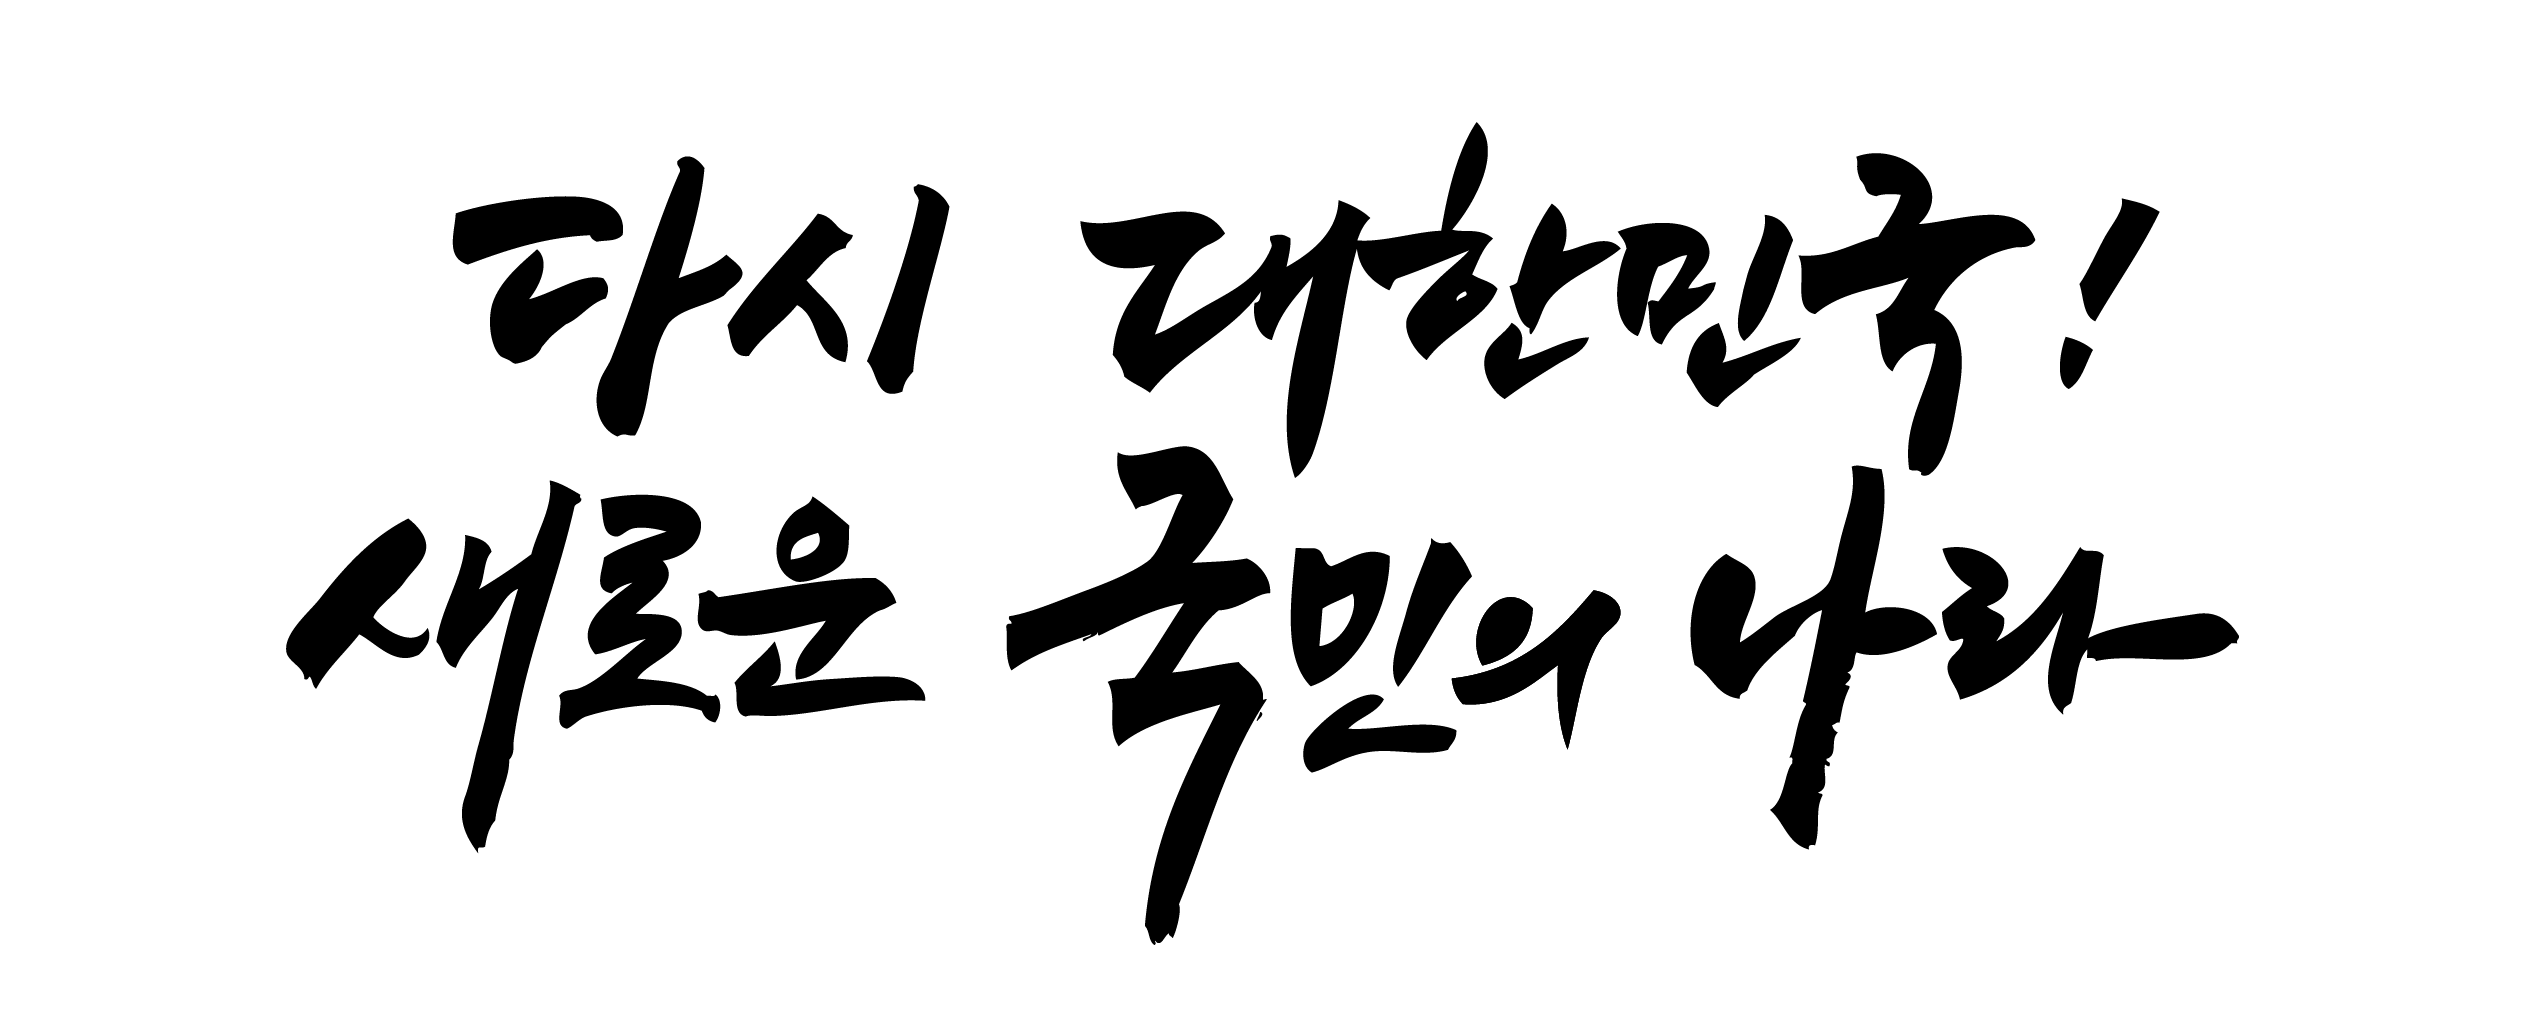 다시 대한민국!
새로운 국민의 나라